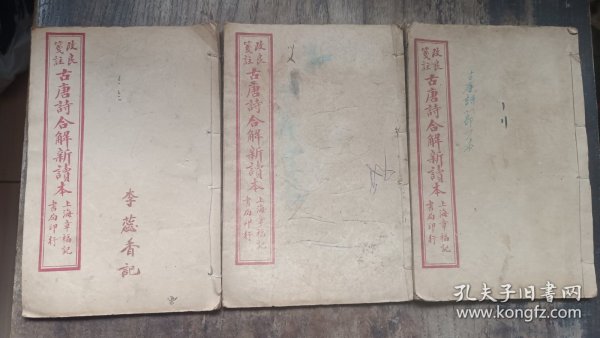 改良
箋註
古唐詩合解新讀本
上海章福記
書局印行
李蕊香記
改良
箋註
古唐詩合解新讀本
上海章福記
書局印行
改良
箋註
古唐詩合解新讀本
上海章福記
書局印行
孔夫子旧书网
www.kongfz.com